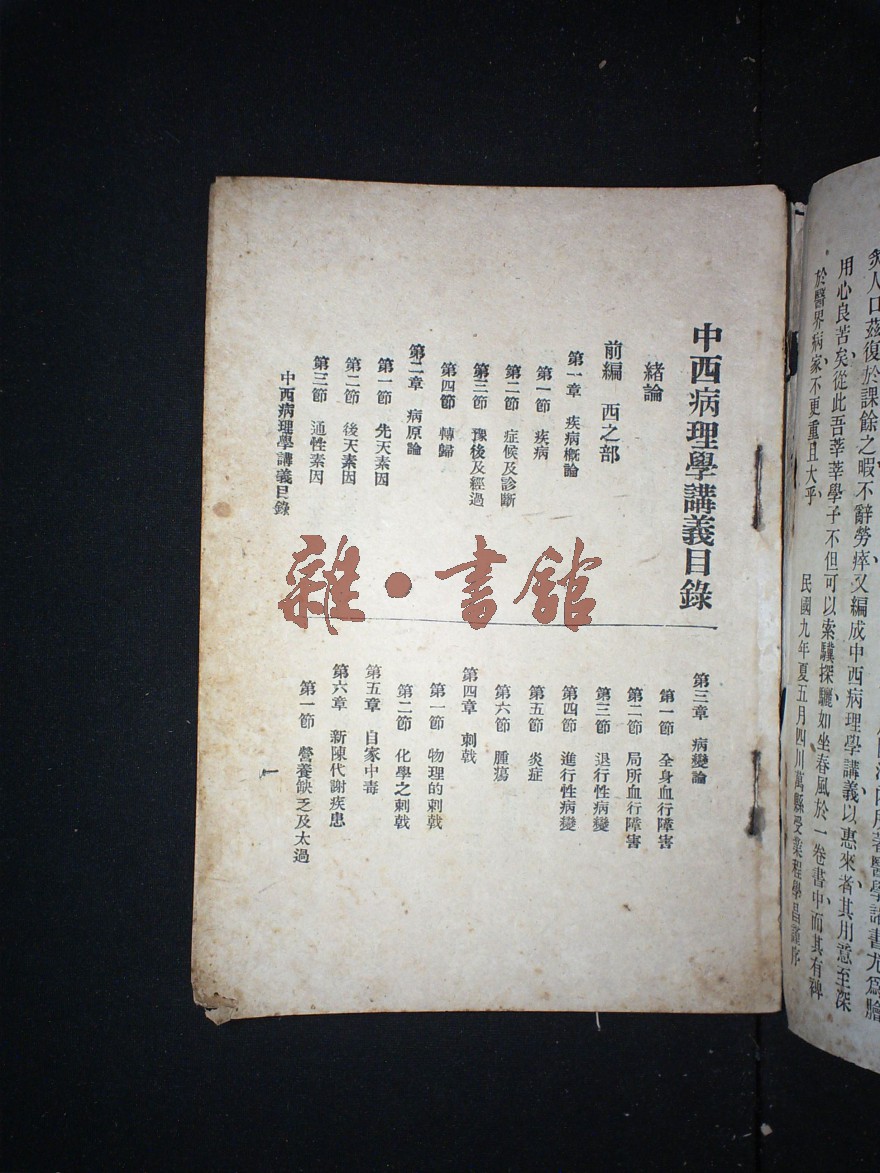 炙人口茲復於課餘之暇不辭勞瘁又編成中西病理學講義以惠來者其用意至深
用心良苦矣從此吾莘莘學子不但可以索驥探驪如坐春風於一卷書中而其有裨
於醫界病家不更重且大乎
民國九年夏五月四川萬縣受業程學昌謹序
中西病理學講義目錄
緒論
前編 西之部
第一章 疾病概論
第一節 疾病
第二節 症候及診斷
第三節 豫後及經過
第四節 轉歸
第二章 病原論
第一節 先天素因
第二節 後天素因
第三節 通性素因
第三章 病變論
第一節 全身血行障害
第二節 局所血行障害
第三節 退行性病變
第四節 進行性病變
第五節 炎症
第六節 腫瘍
第四章 刺戟
第一節 物理的刺戟
第二節 化學之刺戟
第五章 自家中毒
第六章 新陳代謝疾患
第一節 營養缺乏及太過
中西病理學講義目錄
一
雜·書館